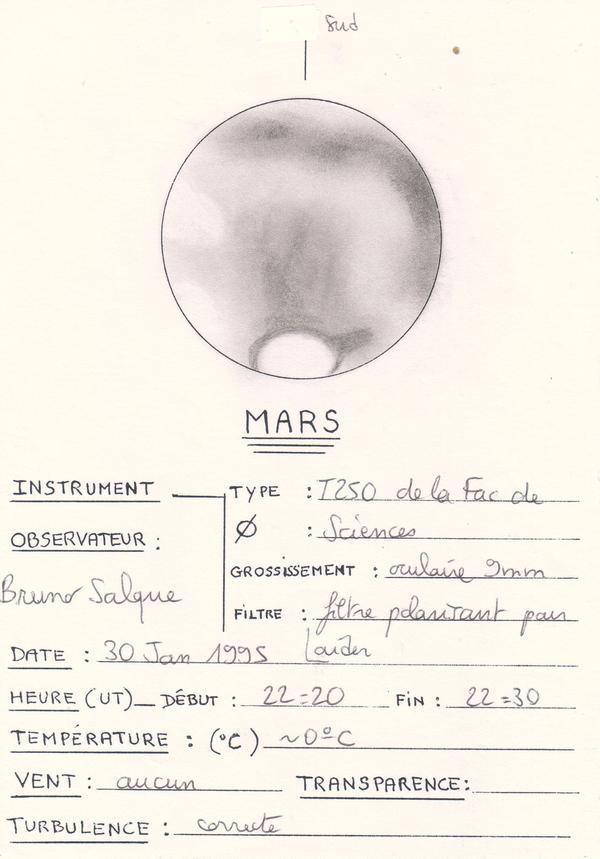 Sud
MARS
INSTRUMENT TYPE : T250 de la Fac de
OBSERVATEUR : Ø : Sciences
GROSSISSEMENT : oculaire 9mm
Bruno Salque FILTRE : filtre polarisant pour
DATE : 30 Jan 1995
HEURE (UT) DÉBUT : 22:20 FIN : 22:30
TEMPÉRATURE : (°C) ~0°C
VENT : aucun TRANSPARENCE:
TURBULENCE : correcte